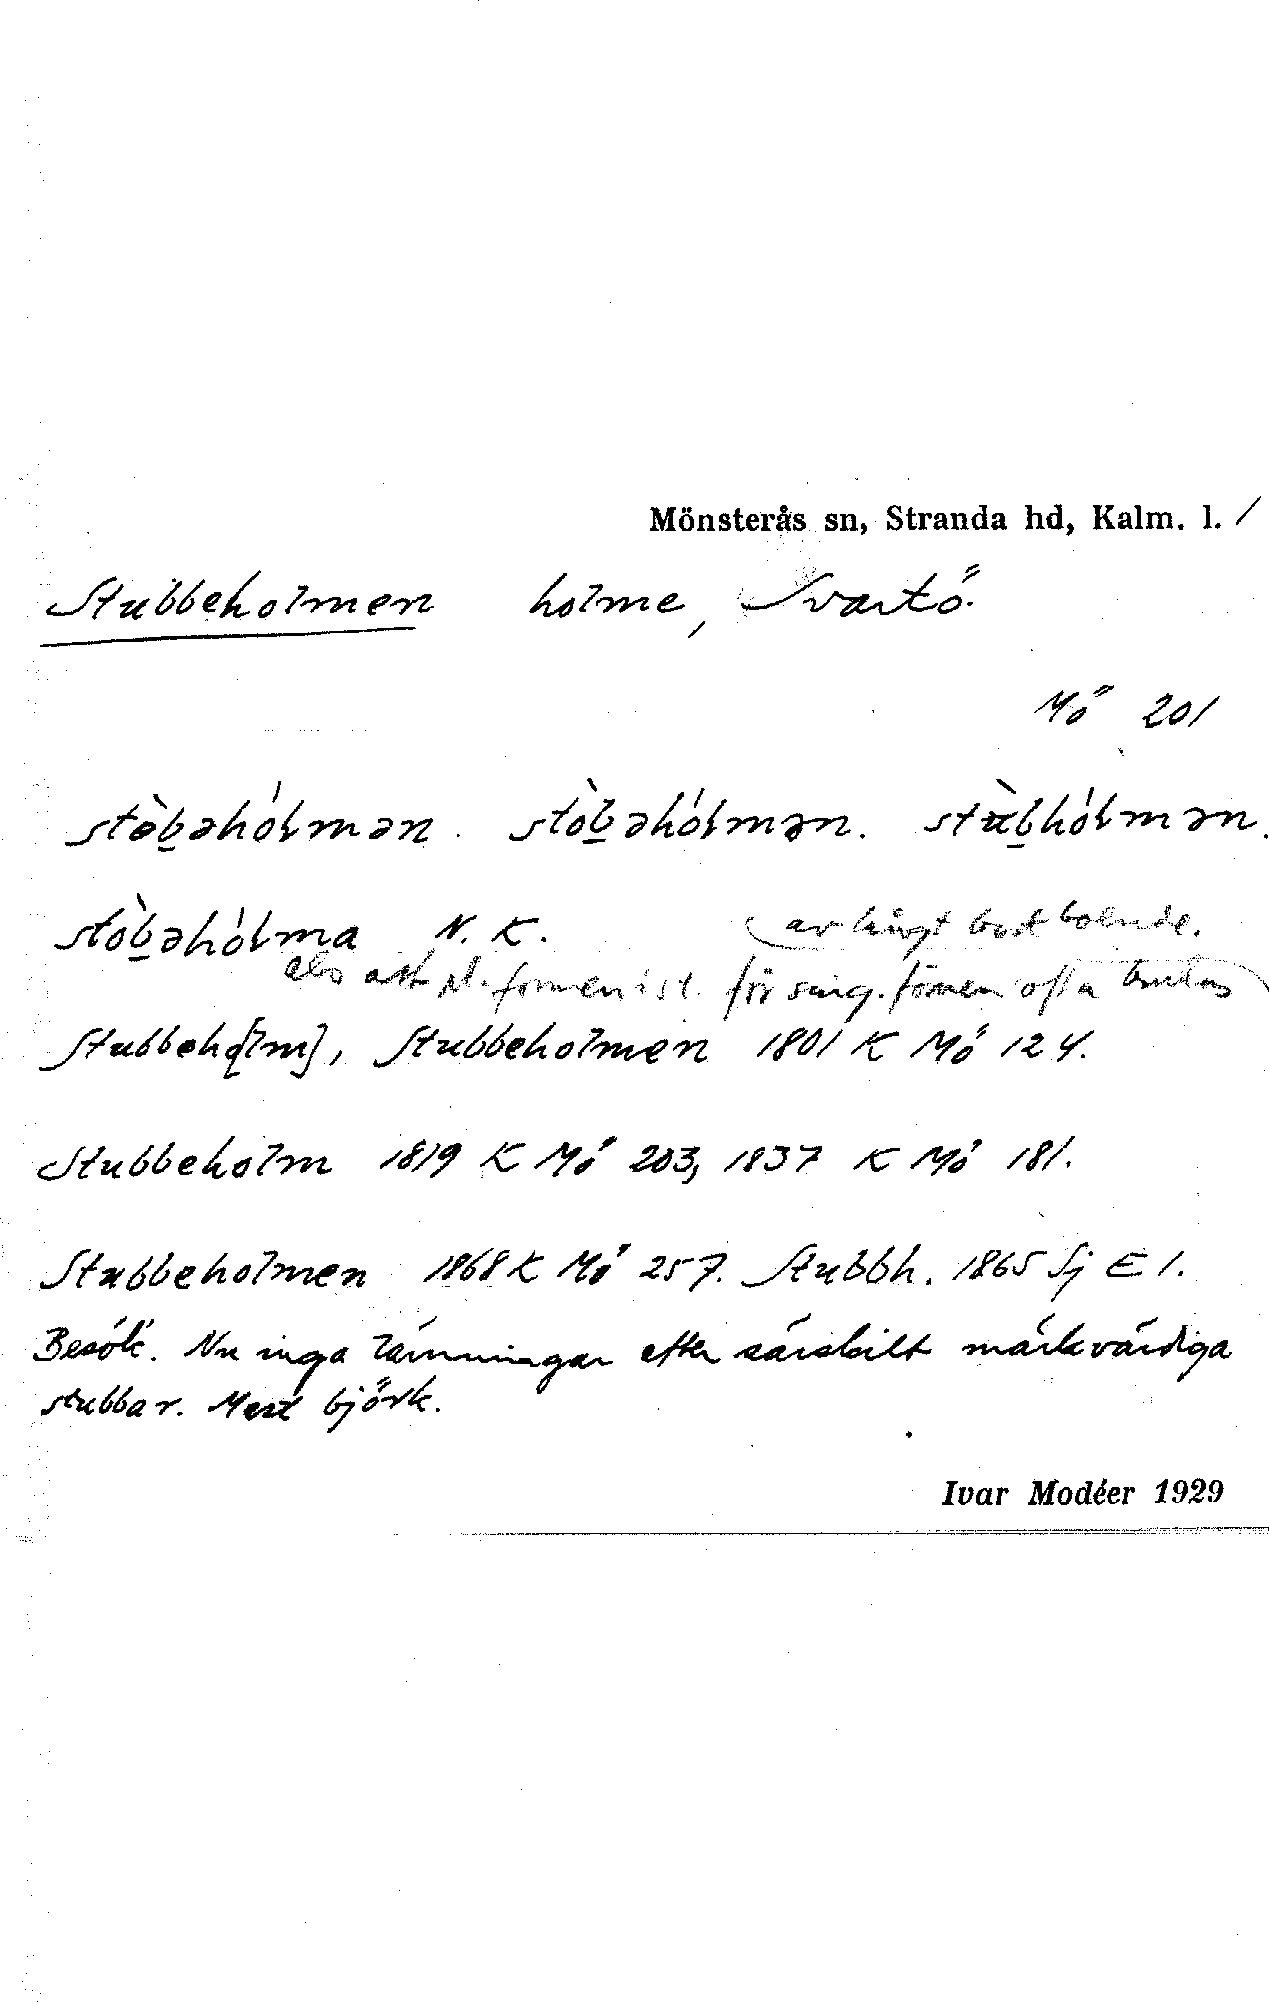 Mönsterås sn, Stranda hd, Kalm. l. /
Stubbeholmen holme, Svartö.
Mö 201
stòb̲əhólmən. stòb̲əhólmən. stùb̲hólmən.
stòb̲əhólma N. K. av långt bort boende.
att pl. formen i st. för sing. formen ofta brukas
Stubbeh[olm], Stubbeholmen 1801 K Mö 124.
Stubbeholm 1819 K Mö 203, 1837 K Mö 181.
Stubbeholmen 1868 K Mö 257. Stubbh. 1865 Sj E 1.
Besök. Nu inga lämningar efter särskilt märkvärdiga
stubbar. Mest björk.
Ivar Modéer 1929